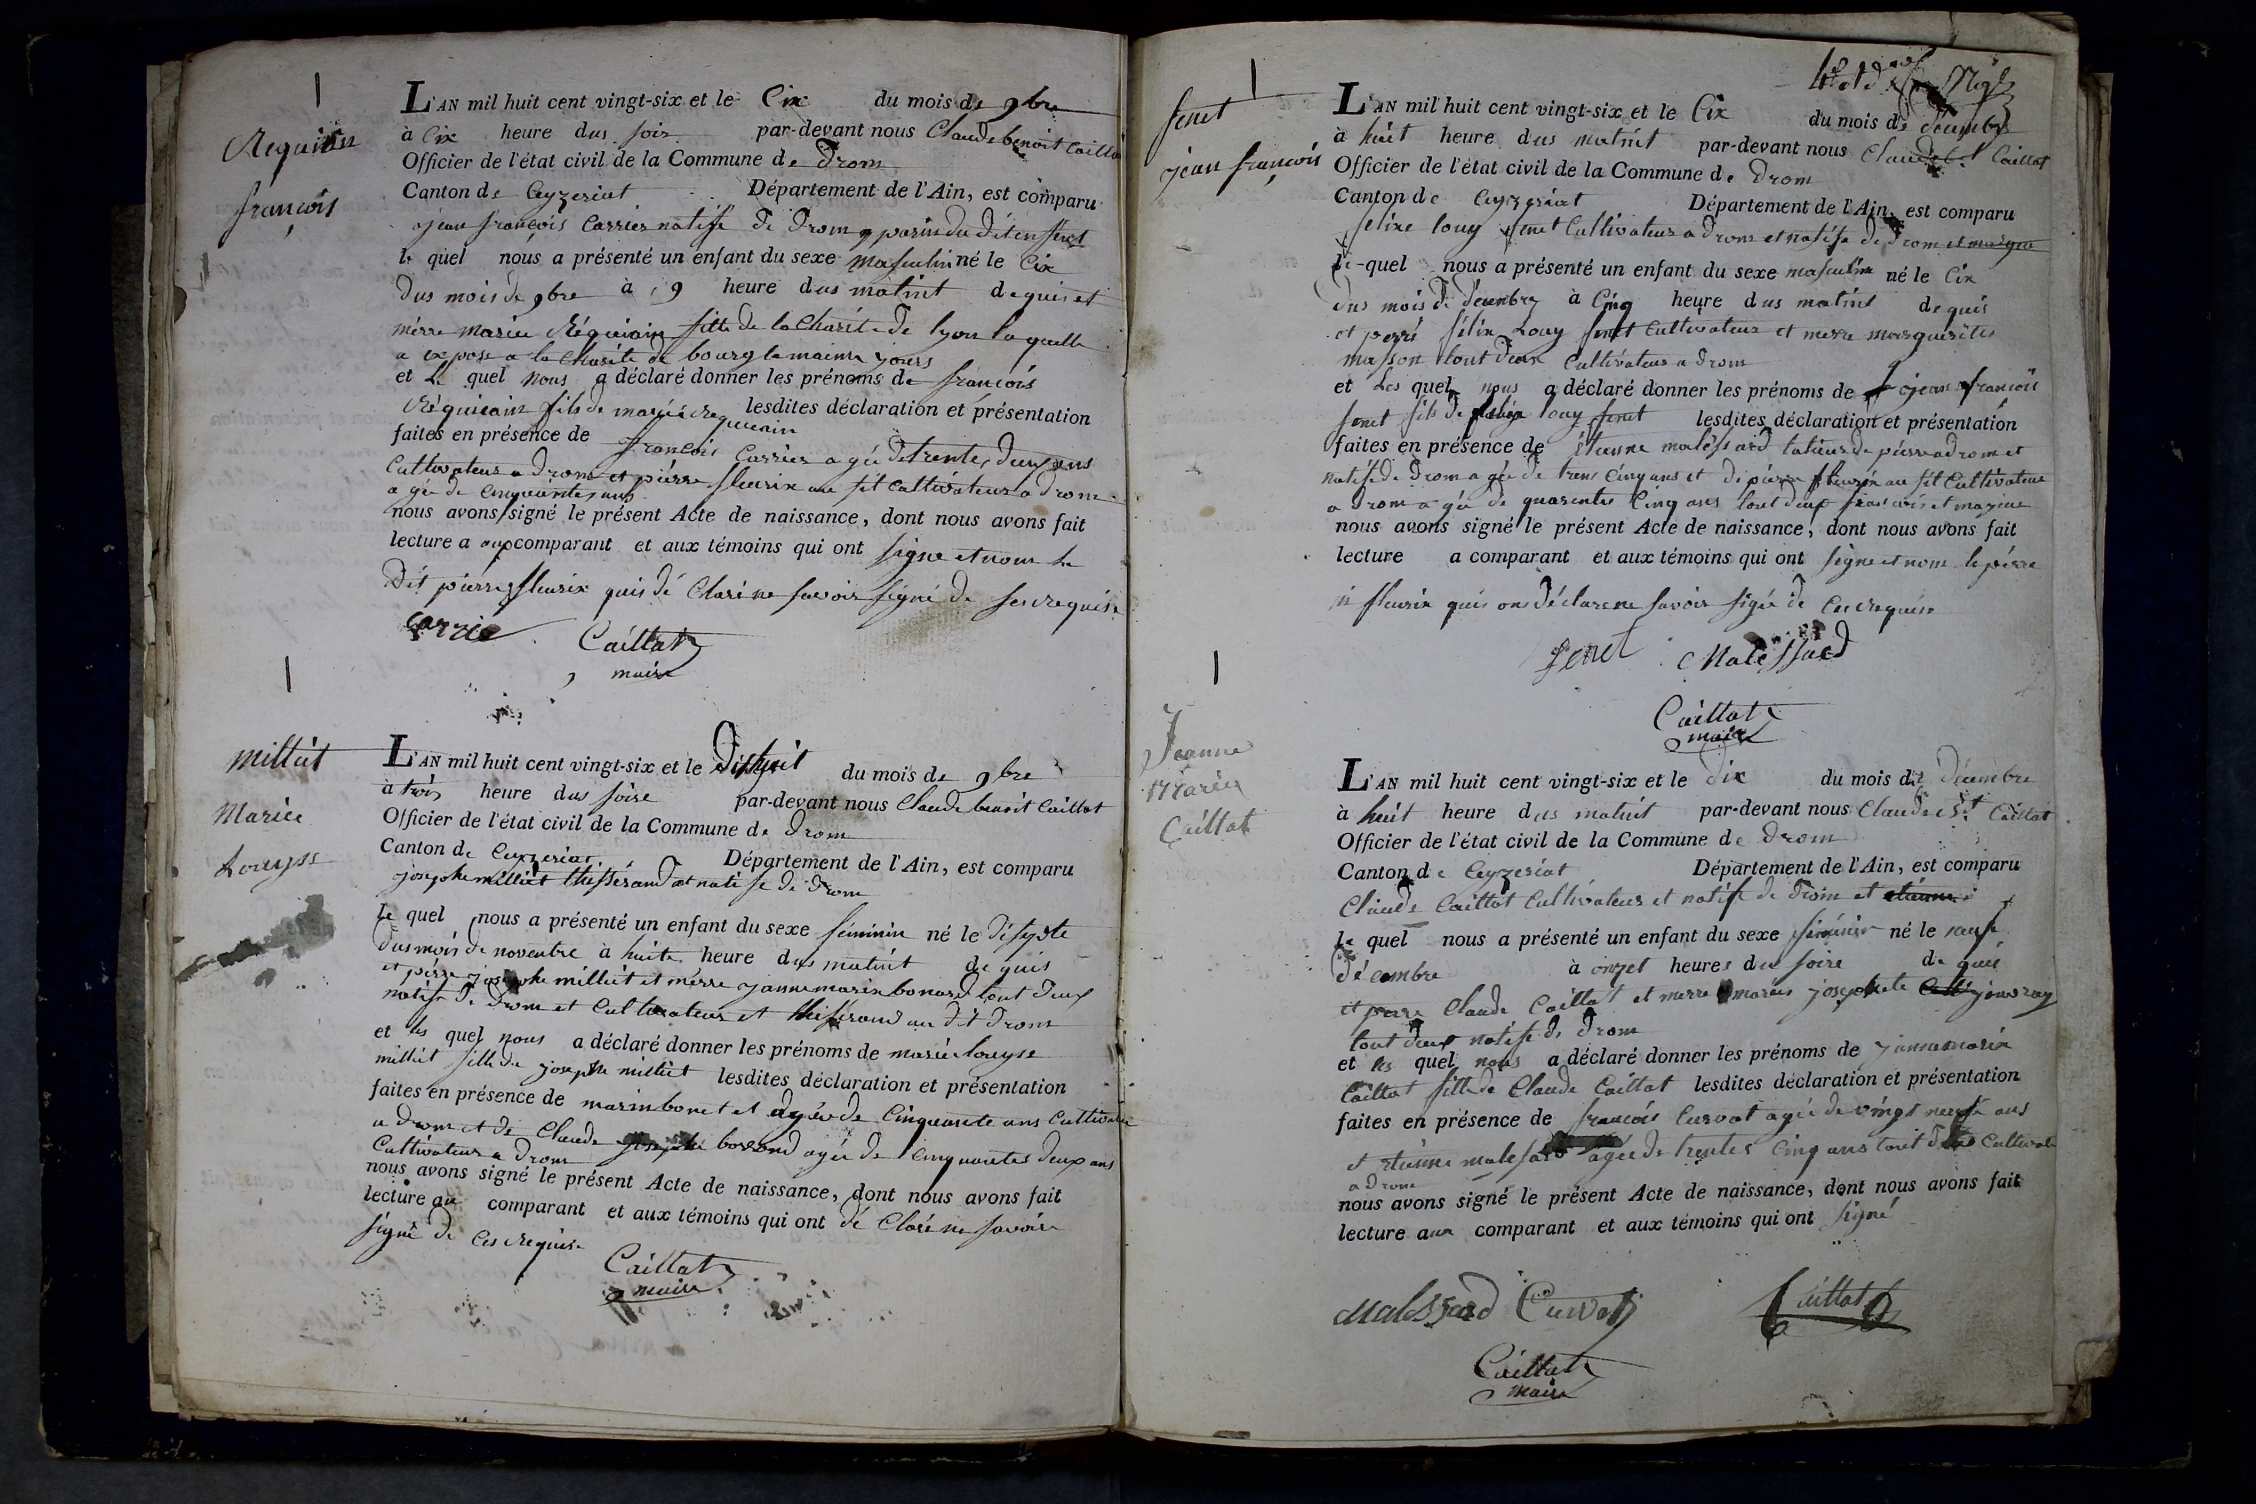 Requiain
françois
L'AN mil huit cent vingt-six et le Cix du mois de 9bre
à Cix heure dus soir par-devant nous Claude benoit Caillat
Officier de l'état civil de la Commune de Drom
Canton de Ceyzeriat Département de l'Ain, est comparu
jean françois Carrier natife de Drom
le quel nous a présenté un enfant du sexe masculin né le Cix
dus mois de 9bre à 9 heure dus matint de quis et
merre mariee Réquiain fille de la Charité de lyon laquelle
a la Charité de bourg
et le quel nous a déclaré donner les prénoms de françois
Réquiain fils de mariee requiain lesdites déclaration et présentation
faites en présence de françois Carrier agée de trente deux ans
Cultivateur a Drom et pierre fleurix au dit Cultivateur a Drom
agée de Cinquante ans
nous avons signé le présent Acte de naissance, dont nous avons fait
lecture a aux comparant et aux témoins qui ont signe et nom le
Dit pierre fleurix quis dé Claré ne savoir signé de ses requise
Carrie
Caillat
maire
milliet
Mariee
Louyse
L'AN mil huit cent vingt-six et le Dishuit du mois de 9bre
à trois heure dus soire par-devant nous Claude benoit Caillat
Officier de l'état civil de la Commune de Drom
Canton de Ceyzeriat Département de l'Ain, est comparu
josephe milliet thisserand et natife de Drom
le quel nous a présenté un enfant du sexe feminin né le
dus mois de novenbre à huite heure dus matint de quis
et pérre josephe milliet et mérre janne marie bonard tout deux
natife de Drom et Cultivateur et thisserand au dit Drom
et les quel nous a déclaré donner les prénoms de mariee louyse
milliet fille de josephe milliet lesdites déclaration et présentation
faites en présence de marin bonet et agée de Cinquante ans Cultivateur
a Drom et de Claude josephe agée de Cinquantes deux ans
Cultivateur a Drom
nous avons signé le présent Acte de naissance, dont nous avons fait
lecture au comparant et aux témoins qui ont dé Claré ne savoire
signé de Ces requise
Caillat
maire
fenet
jean françois
L'AN mil huit cent vingt-six et le Cix du mois de décembre
à huit heure dus matint par-devant nous Claude Bt Caillat
Officier de l'état civil de la Commune de Drom
Canton de Ceyzeriat Département de l'Ain, est comparu
felixe louy fenet Cultivateur a Drom et natife de Drom
le-quel nous a présenté un enfant du sexe masculin né le Cix
dus mois de décenbre à Cinq heure dus matint de quis
et perré félix Louy fenet Cultivateur et merre marguerites
masson tout deux Cultivateur a Drom
et Les quel nous a déclaré donner les prénoms de jean françois
fenet fils de félix louy fenet lesdites déclaration et présentation
faites en présence de étienne malessard tallieur de pierre a drom et
natife de Drom agée de trens Cinq ans et de pierre fleurix au dit Cultivateur
a Drom agée de quarentes Cinq ans tout deux
nous avons signé le présent Acte de naissance, dont nous avons fait
lecture a comparant et aux témoins qui ont signe et nom le pérre
fleurix quis ons déclare ne savoir sigée de Ces requise
fenet Malessard
Caillat
maire
Jeanne
Mariee
Caillat
L'AN mil huit cent vingt-six et le dix du mois de décembre
à huit heure dus matint par-devant nous Claude Bt Caillat
Officier de l'état civil de la Commune de Drom
Canton de Ceyzeriat Département de l'Ain, est comparu
Claude Caillat Cultivateur et natife de Drom et etienne
le quel nous a présenté un enfant du sexe féminin né le neuf
décembre à onzet heures dus soire de quis
et perre Claude Caillat et merre mariee josephete jouvray
tout deux natife de Drom
et les quel nous a déclaré donner les prénoms de janne marie
Caillat fille de Claude Caillat lesdites déclaration et présentation
faites en présence de françois Curvat agée de vingt neuf ans
et etienne malesard agée de trentes Cinq ans tout deux Cultivat
a Drom
nous avons signé le présent Acte de naissance, dont nous avons fait
lecture aux comparant et aux témoins qui ont signé
Malessard Curvat Caillat
Caillat
maire